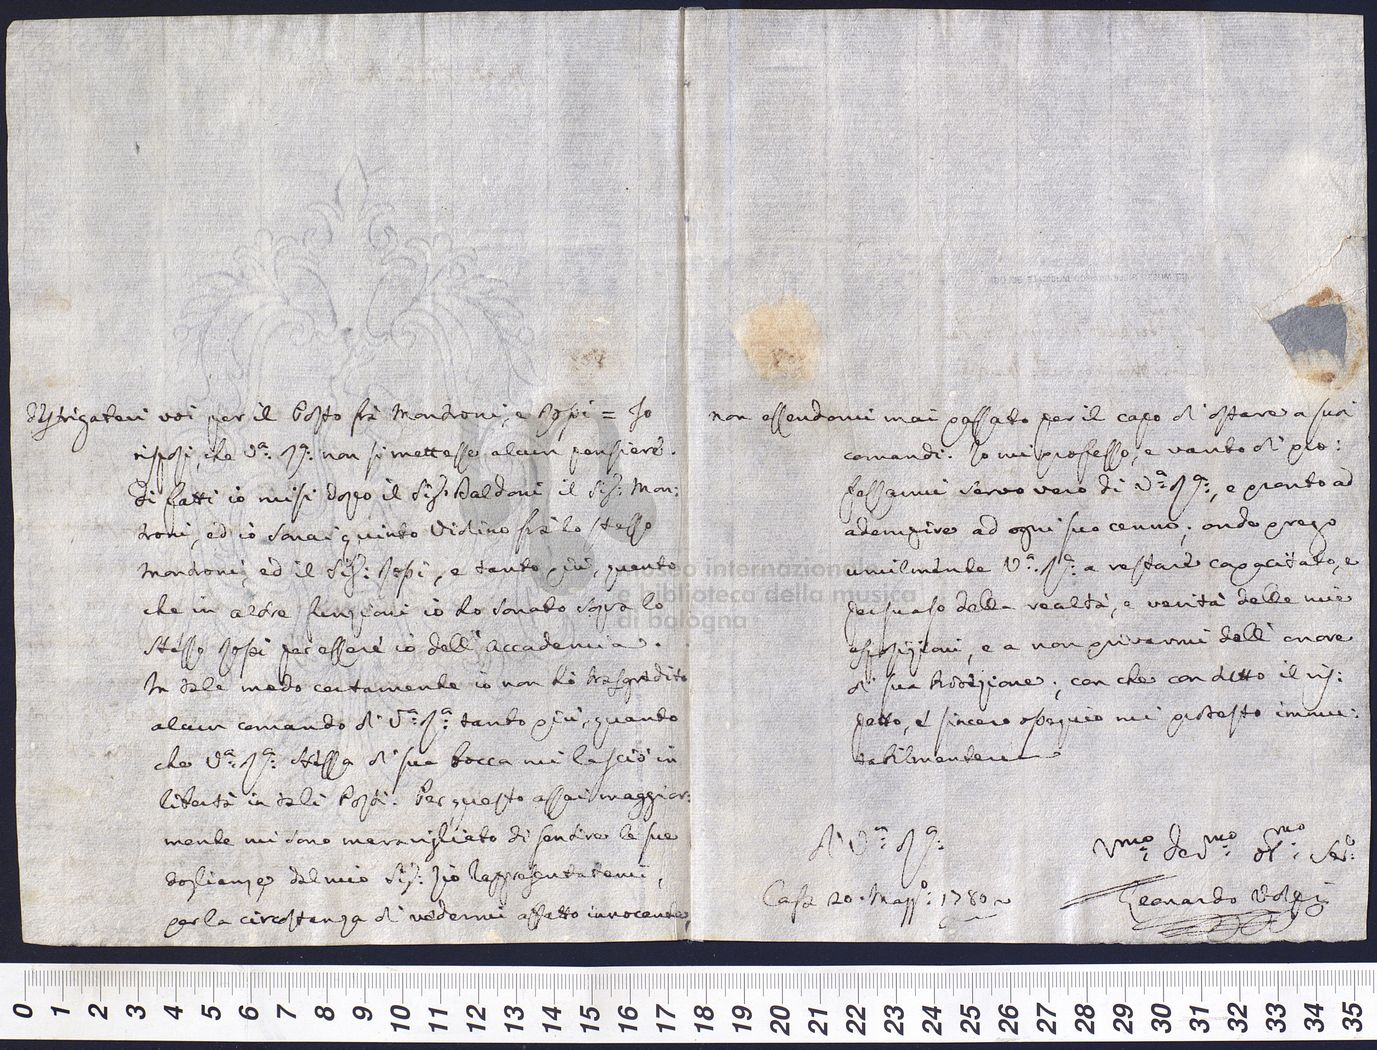 distrigatevi voi per il Posto frà Mondroni, e Sopi = Io
risposi, che V.a S.a non si mettesse alcun pensiere.
Di fatti io misi dopo il Sig.r Baldoni, il Sig.r Mon:
droni, ed io sonai quinto Violino frà lo stesso
Mondroni, ed il Sig.r Sopi, e tanto più, quanto
che in altre funzioni io hò sonato sopra lo
stesso Sopi per essere io dell'Accademia.
In tale modo certamente io non hò trasgredito
alcun comando di V.a S.a tanto più, quando
che V.a S.a stessa di sua bocca mi lasciò in
libertà in tali Posti. Per questo assai maggior:
mente mi sono meravigliato di sentire le sue
doglianze dal mio Sig.r Zio rappresentatemi,
per la circostanza di vedermi affatto innocente,
non essendomi mai passato per il capo di ostare a suoi
comandi. Io mi professo, e vanto di pro:
fessarmi servo vero di V.a S.a, e pronto ad
adempire ad ogni suo cenno; onde prego
umilmente V.a S.a a restare capacitato, e
persuaso della realtà, e verità delle mie
esposizioni, e a non privarmi dell'onore
di sua Protezione; con che con tutto il ris:
petto, e sincero ossequio mi protesto immu:
tabilmente
Di V.a S.a
Casa 20. Magg.o 1780
Um.o Dev.mo Ob.mo Ser.
Leonardo Volpi
museo internazionale
e biblioteca della musica
di bologna
0 1 2 3 4 5 6 7 8 9 10 11 12 13 14 15 16 17 18 19 20 21 22 23 24 25 26 27 28 29 30 31 32 33 34 35